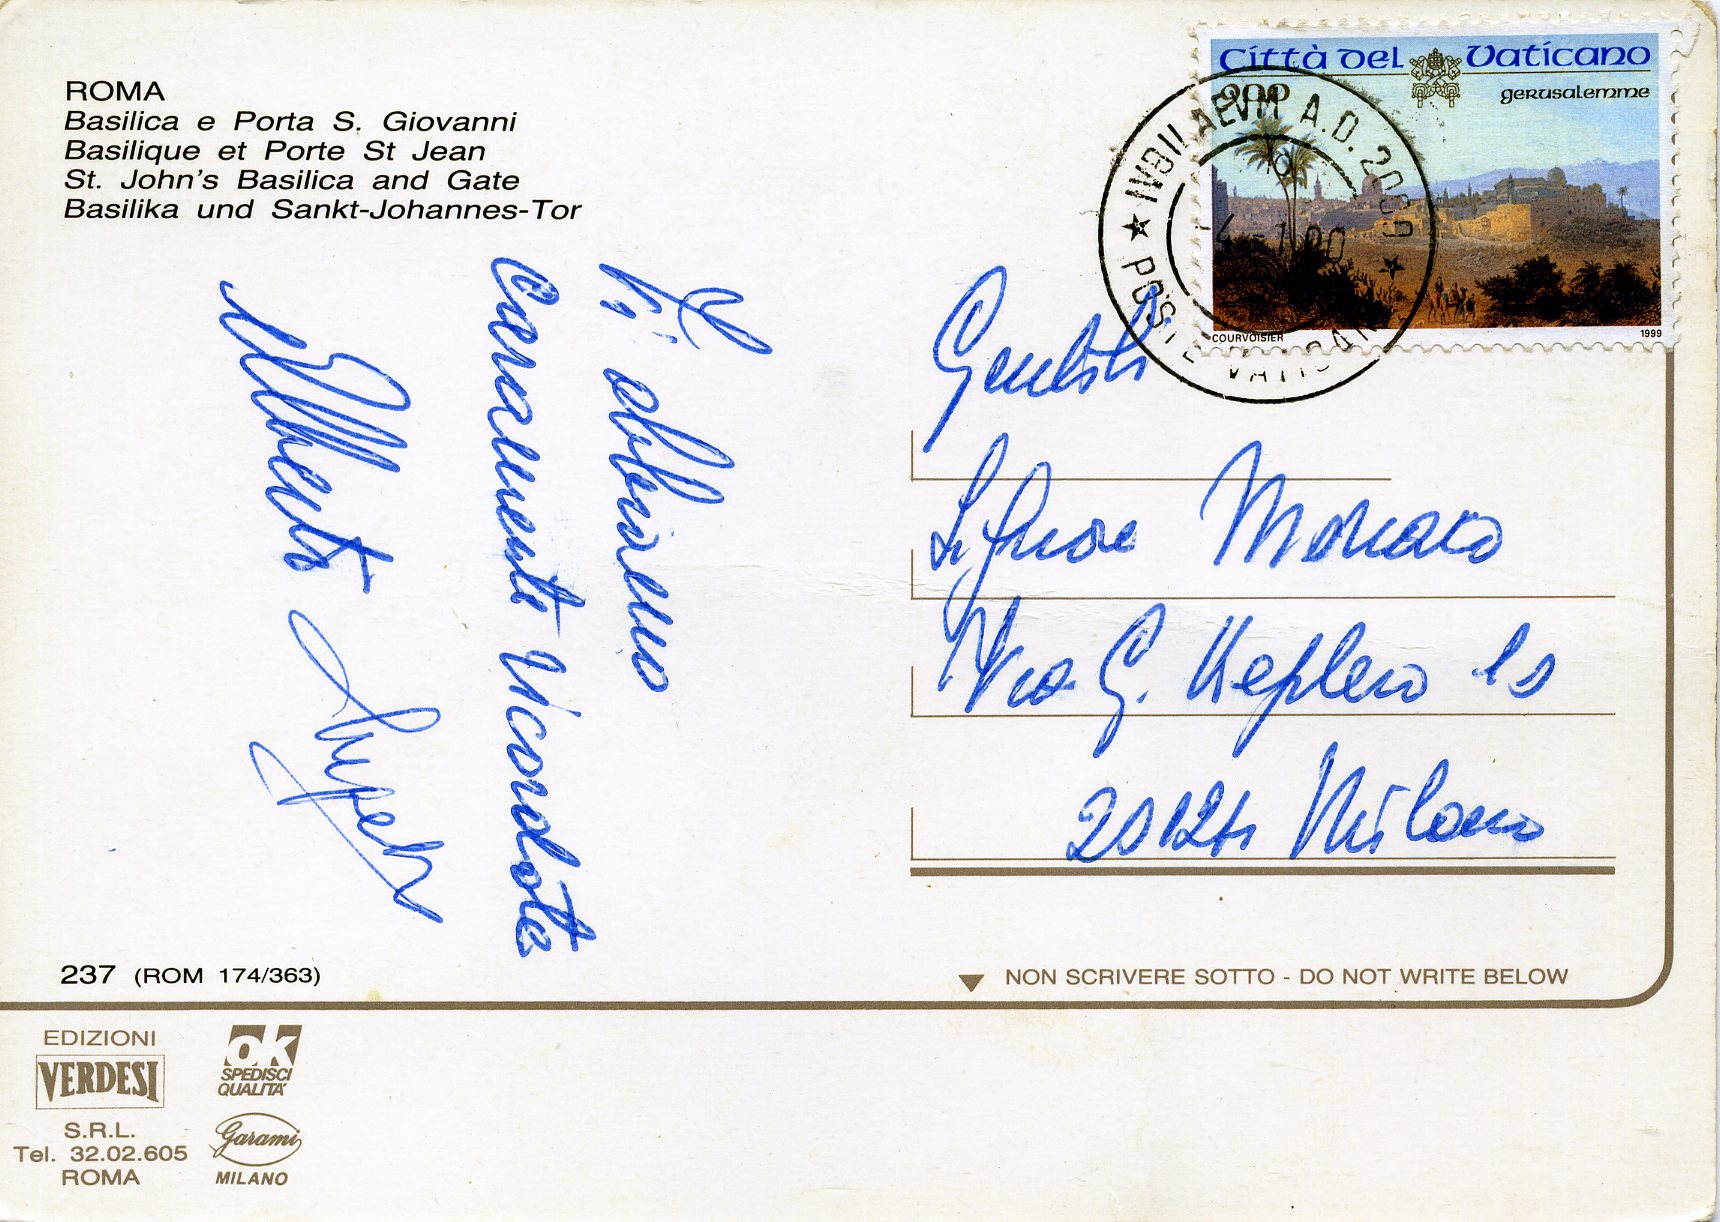 ROMA
Basilica e Porta S. Giovanni
Basilique et Porte St Jean
St. John's Basilica and Gate
Basilika und Sankt-Johannes-Tor
Vi abbiamo
caramente ricordato
Alberto
Città del Vaticano
200
gerusalemme
COURVOISIER
1999
IVBILAEVM A.D. 2000
POSTE VATICANE
Gentili
Signore Monaco
Via G. Keplero 10
20124 Milano
237 (ROM 174/363)
NON SCRIVERE SOTTO - DO NOT WRITE BELOW
EDIZIONI
VERDESI
S.R.L.
Tel. 32.02.605
ROMA
OK
SPEDISCI
QUALITA'
Garami
MILANO